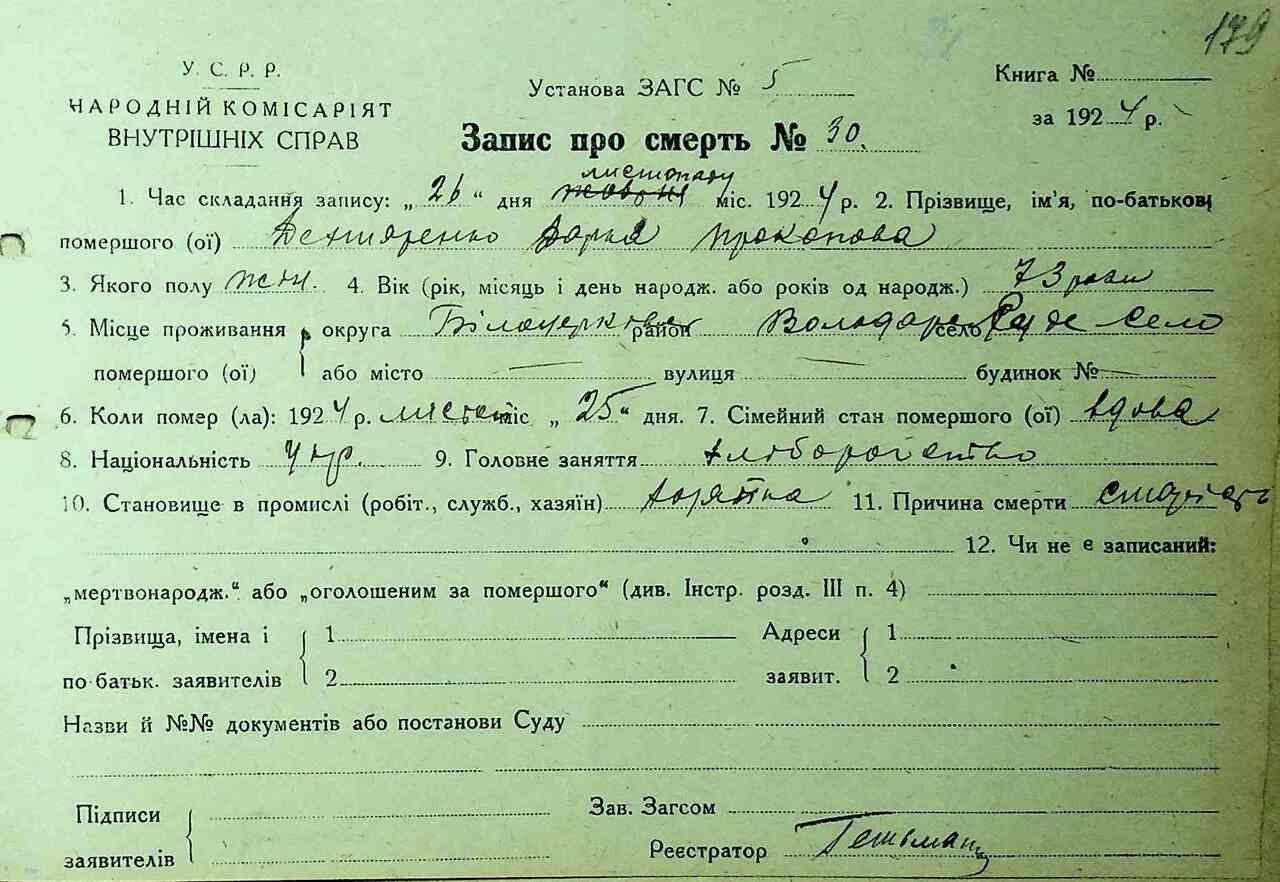 179
У. С. Р. Р.
НАРОДНІЙ КОМІСАРІЯТ
ВНУТРІШНІХ СПРАВ
Установа ЗАГС № 5
Книга №
за 1924 р.
Запис про смерть № 30.
листопаду
1. Час складання запису: „26“ дня жовтня міс. 1924 р. 2. Прізвище, ім'я, по-батькові
помершого (ої) Дехтяренко Варка Прокопова
3. Якого полу жін. 4. Вік (рік, місяць і день народж. або років од народж.) 73 роки
5. Місце проживання округа Білоцерков район Володарс село Руде Село
помершого (ої) або місто вулиця будинок №
6. Коли помер (ла): 1924 р. листоп міс „25“ дня. 7. Сімейний стан помершого (ої) вдова
8. Національність укр. 9. Головне заняття хліборобство
10. Становище в промислі (робіт., служб., хазяїн) 11. Причина смерти старість
12. Чи не є записаний:
„мертвонародж.“ або „оголошеним за помершого“ (див. Інстр. розд. III п. 4)
Прізвища, імена і 1 Адреси 1
по-батьк. заявителів 2 заявит. 2
Назви й №№ документів або постанови Суду
Підписи Зав. Загсом
заявителів Реєстратор Гетьманц